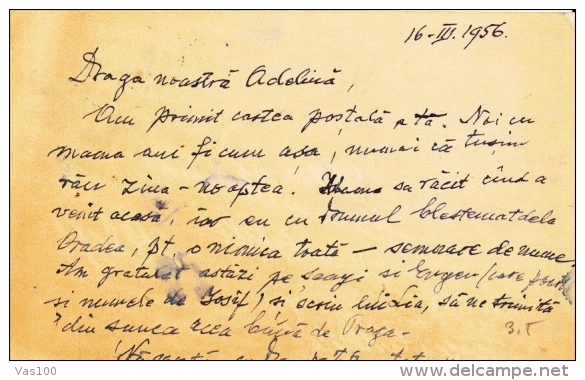 16-III.1956.
Draga noastră Adelină,
Am primit cartea poștală a ta. Noi cu
mama am fi cum așa, numai că tușim
rău ziua-noaptea. Mama sa răcit cînd a
venit acasă, iar eu cu drumul blestemat dela
Oradea, pt o nimica toată — semnare de nume.
Am gratulat astăzi pe și Eugen (care poartă
și numele de Iosif) și scriu lui Lia, să ne trimită
din șunca acea de Praga-
Vas100
delcampe.net